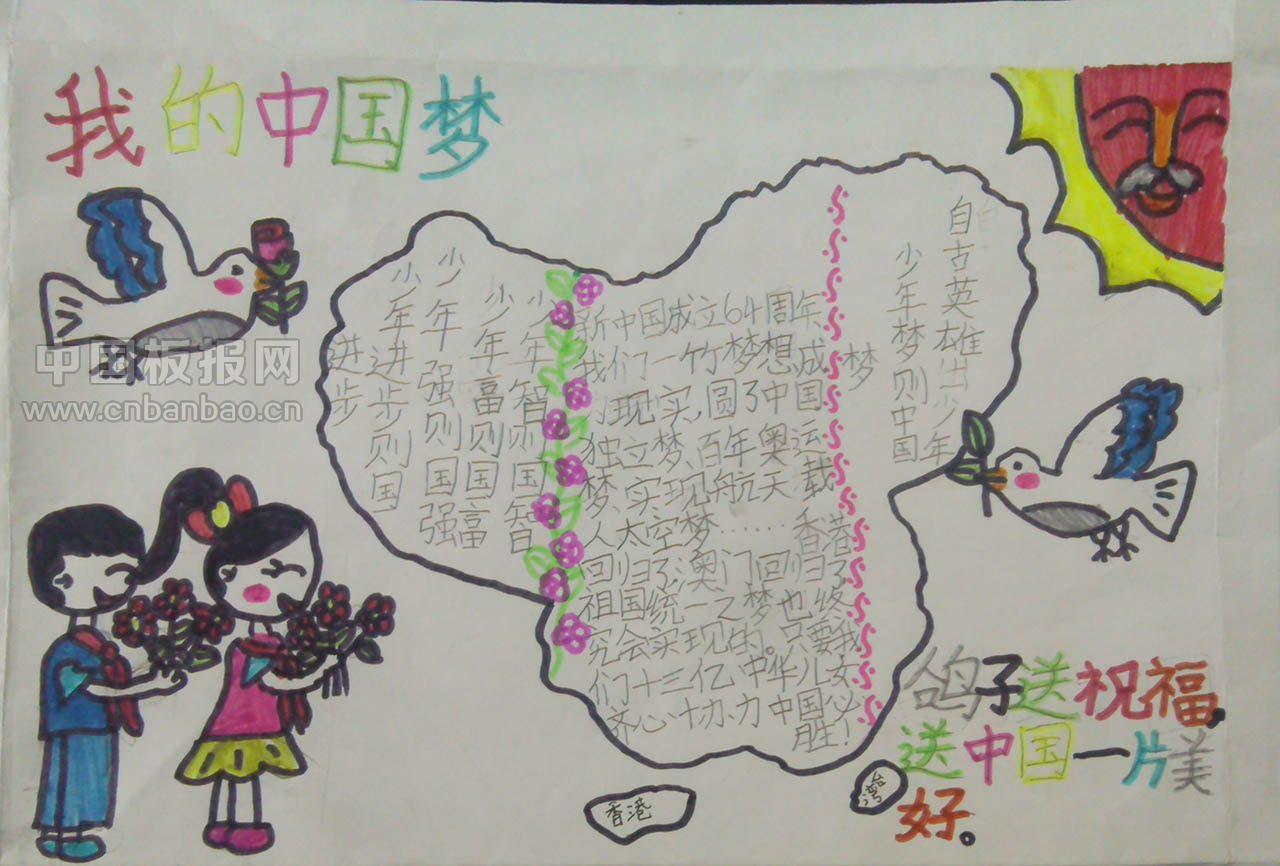 我的中国梦
自古英雄出少年
少年梦则中国
梦
新中国成立64周年,
我们一竹梦想成
现实,圆了中国
独立梦、百年奥运
梦、实现航天载
人太空梦……香港
回归了,澳门回归了
祖国统一之梦也终
究会实现的。只要我
们十三亿中华儿女
齐心协力中国必
胜!
少年智则国智
少年富则国富
少年强则国强
少年进步则国
进步
鸽子送祝福,
送中国一片美
好。
香港
台湾
中国板报网
www.cnbanbao.cn